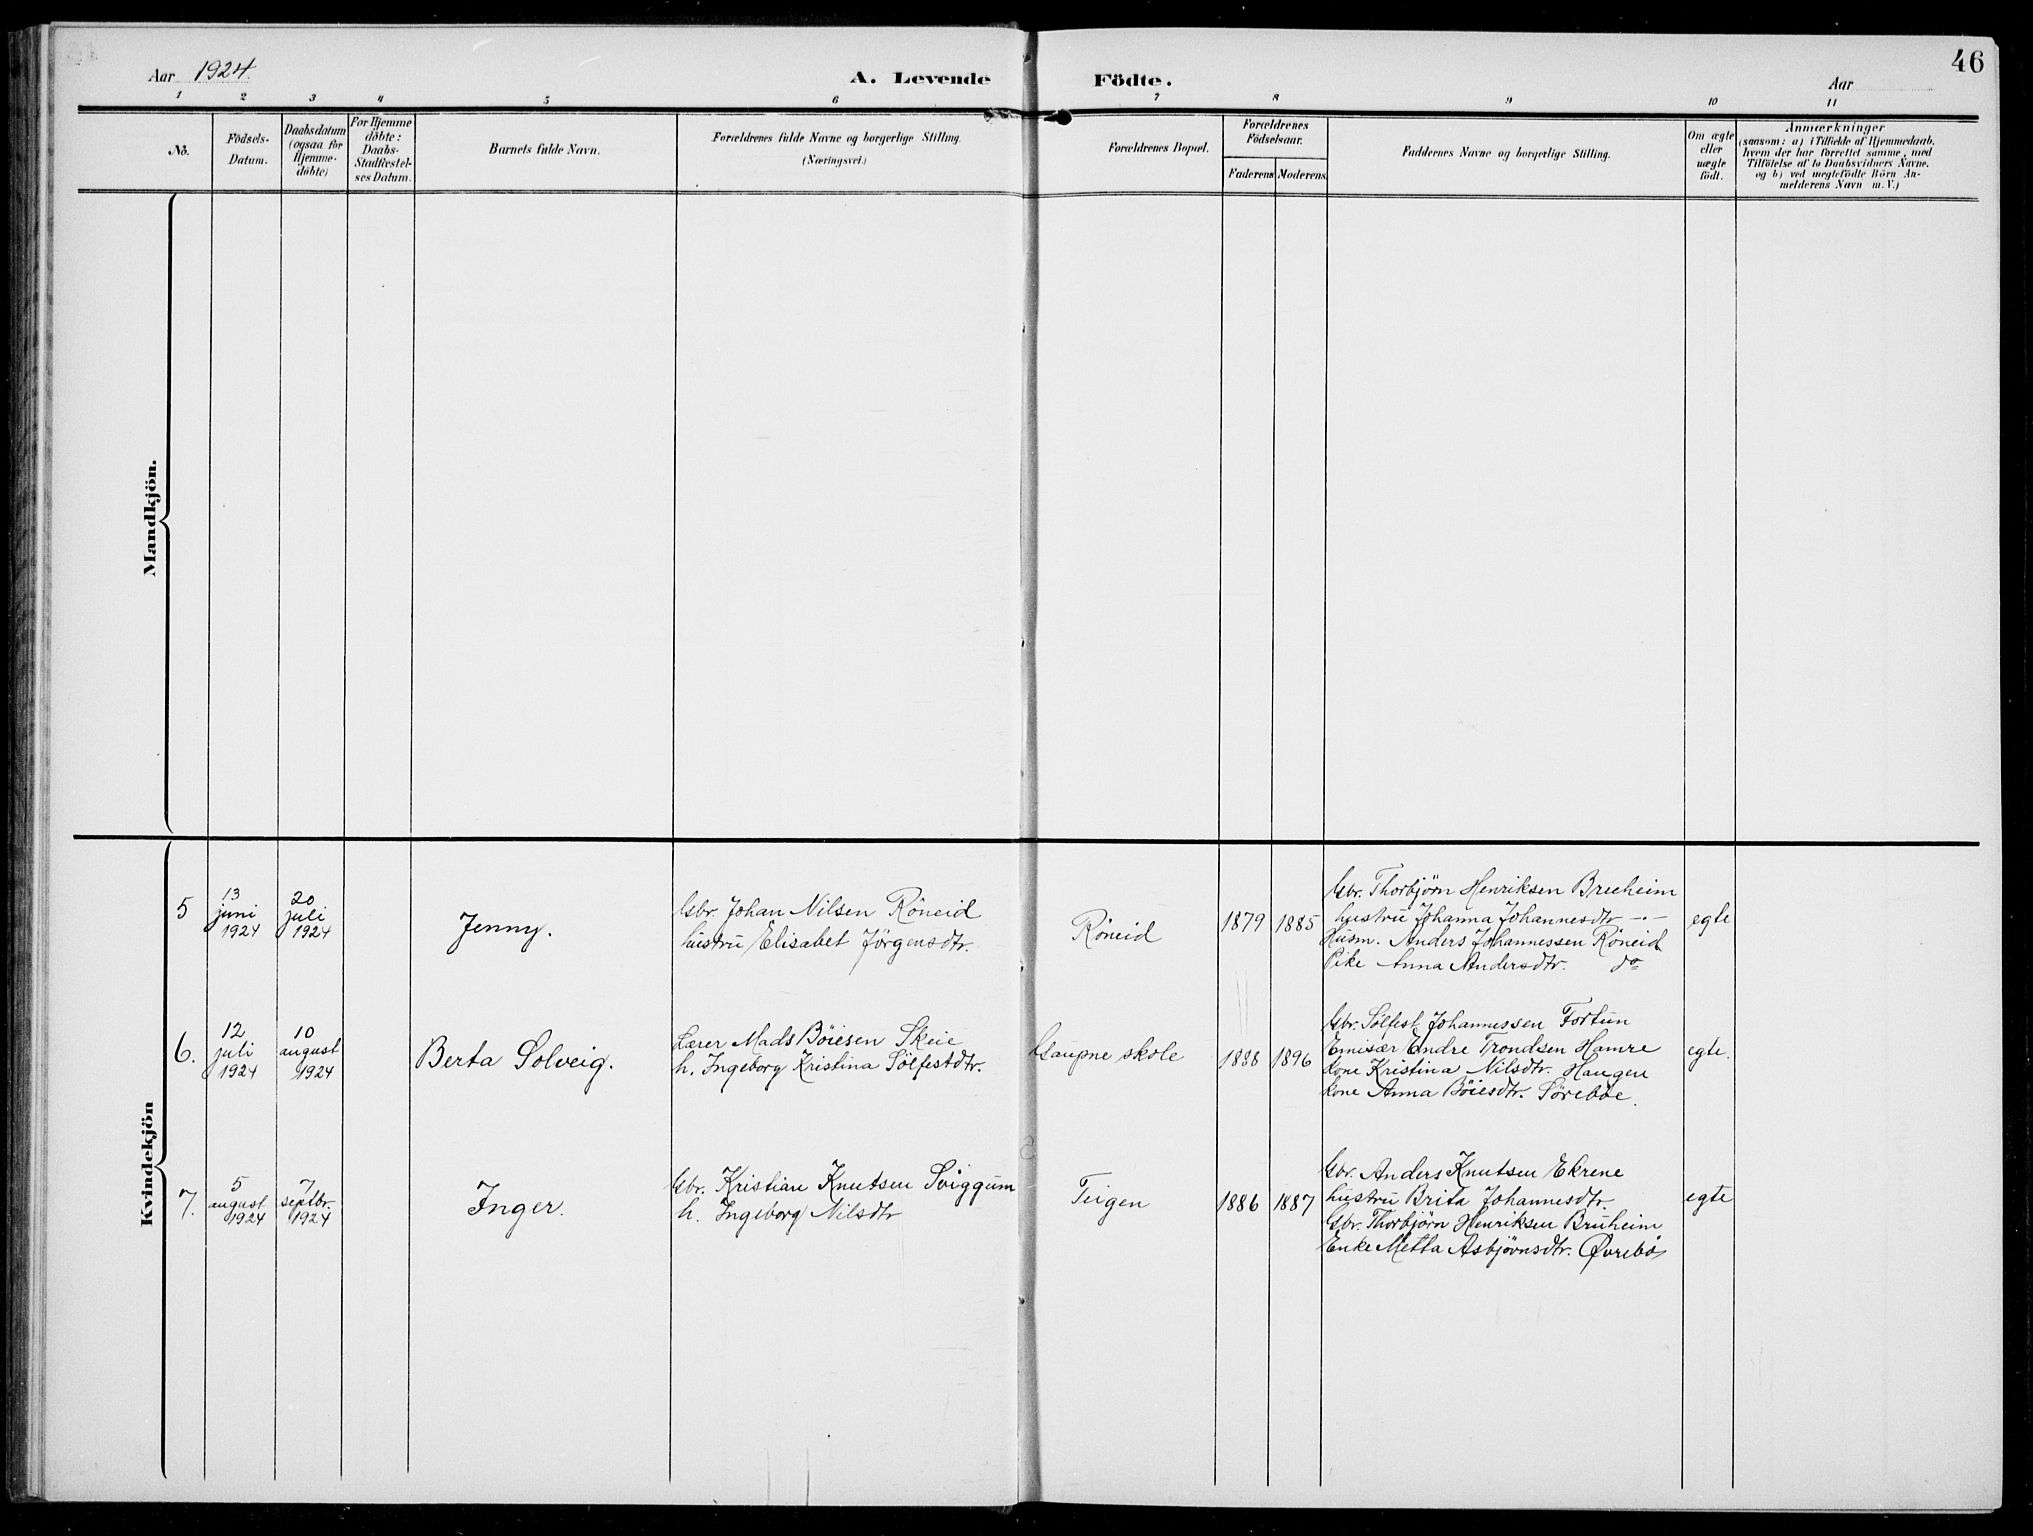 46
Aar 1924
A. Levende Födte.
Aar
1 2 3 4 5 6 7 8 9 10 11
No.
Födsels-
Datum.
Daabsdatum
(ogsaa for
Hjemme-
döbte)
For Hjemme
döbte:
Daabs-
Stadfestel-
ses Datum.
Barnets fulde Navn.
Forældrenes fulde Navne og borgerlige Stilling.
(Næringsvei.)
Forældrenes Bopæl.
Forældrenes
Födselsaar.
Faderens Moderens
Faddernes Navne og borgerlige Stilling.
Om ægte
eller
uægte
födt.
Anmærkninger
(saasom: a) i Tilfælde af Hjemmedaab,
hvem der har forrettet samme, med
Tilföielse af to Daabsvidners Navne,
og b) ved uægtefödte Börn An-
melderens Navn m. V.)
Mandkjön.
Kvindekjön
5
13
juni
1924
20
juli
1924
Jenny.
Gbr. Johan Nilsen Röneid
hustru Elisabet Jörgensdtr.
Röneid
1879
1885
Gbr. Thorbjörn Henriksen Bruheim
hustru Johanna Johannesdtr —·—
Husm. Anders Johannessen Röneid
Pike Anna Andersdtr. do
egte
6.
12
juli
1924
10
august
1924
Berta Solveig.
Lærer Mads Böiesen Skeie
h. Ingeborg Kristina Sölfestdtr.
Gaupne skole
1888
1896
Gbr. Sölfest Johannessen Fortun
Emisær Endre Trondsen Hamre
Kone Kristina Nilsdtr. Haugen
Kone Anna Böiesdtr. Söreböe.
egte.
7.
5
august
1924
7
septbr.
1924
Inger.
Gbr. Kristian Knutsen Sviggum
h. Ingeborg Nilsdtr
Teigen
1886
1887
Gbr. Anders Knutsen Ekrene
hustru Brita Johannesdtr.
Gbr. Thorbjörn Henriksen Bruheim
Enke Metta Asbjörnsdtr. Övrebö
egte